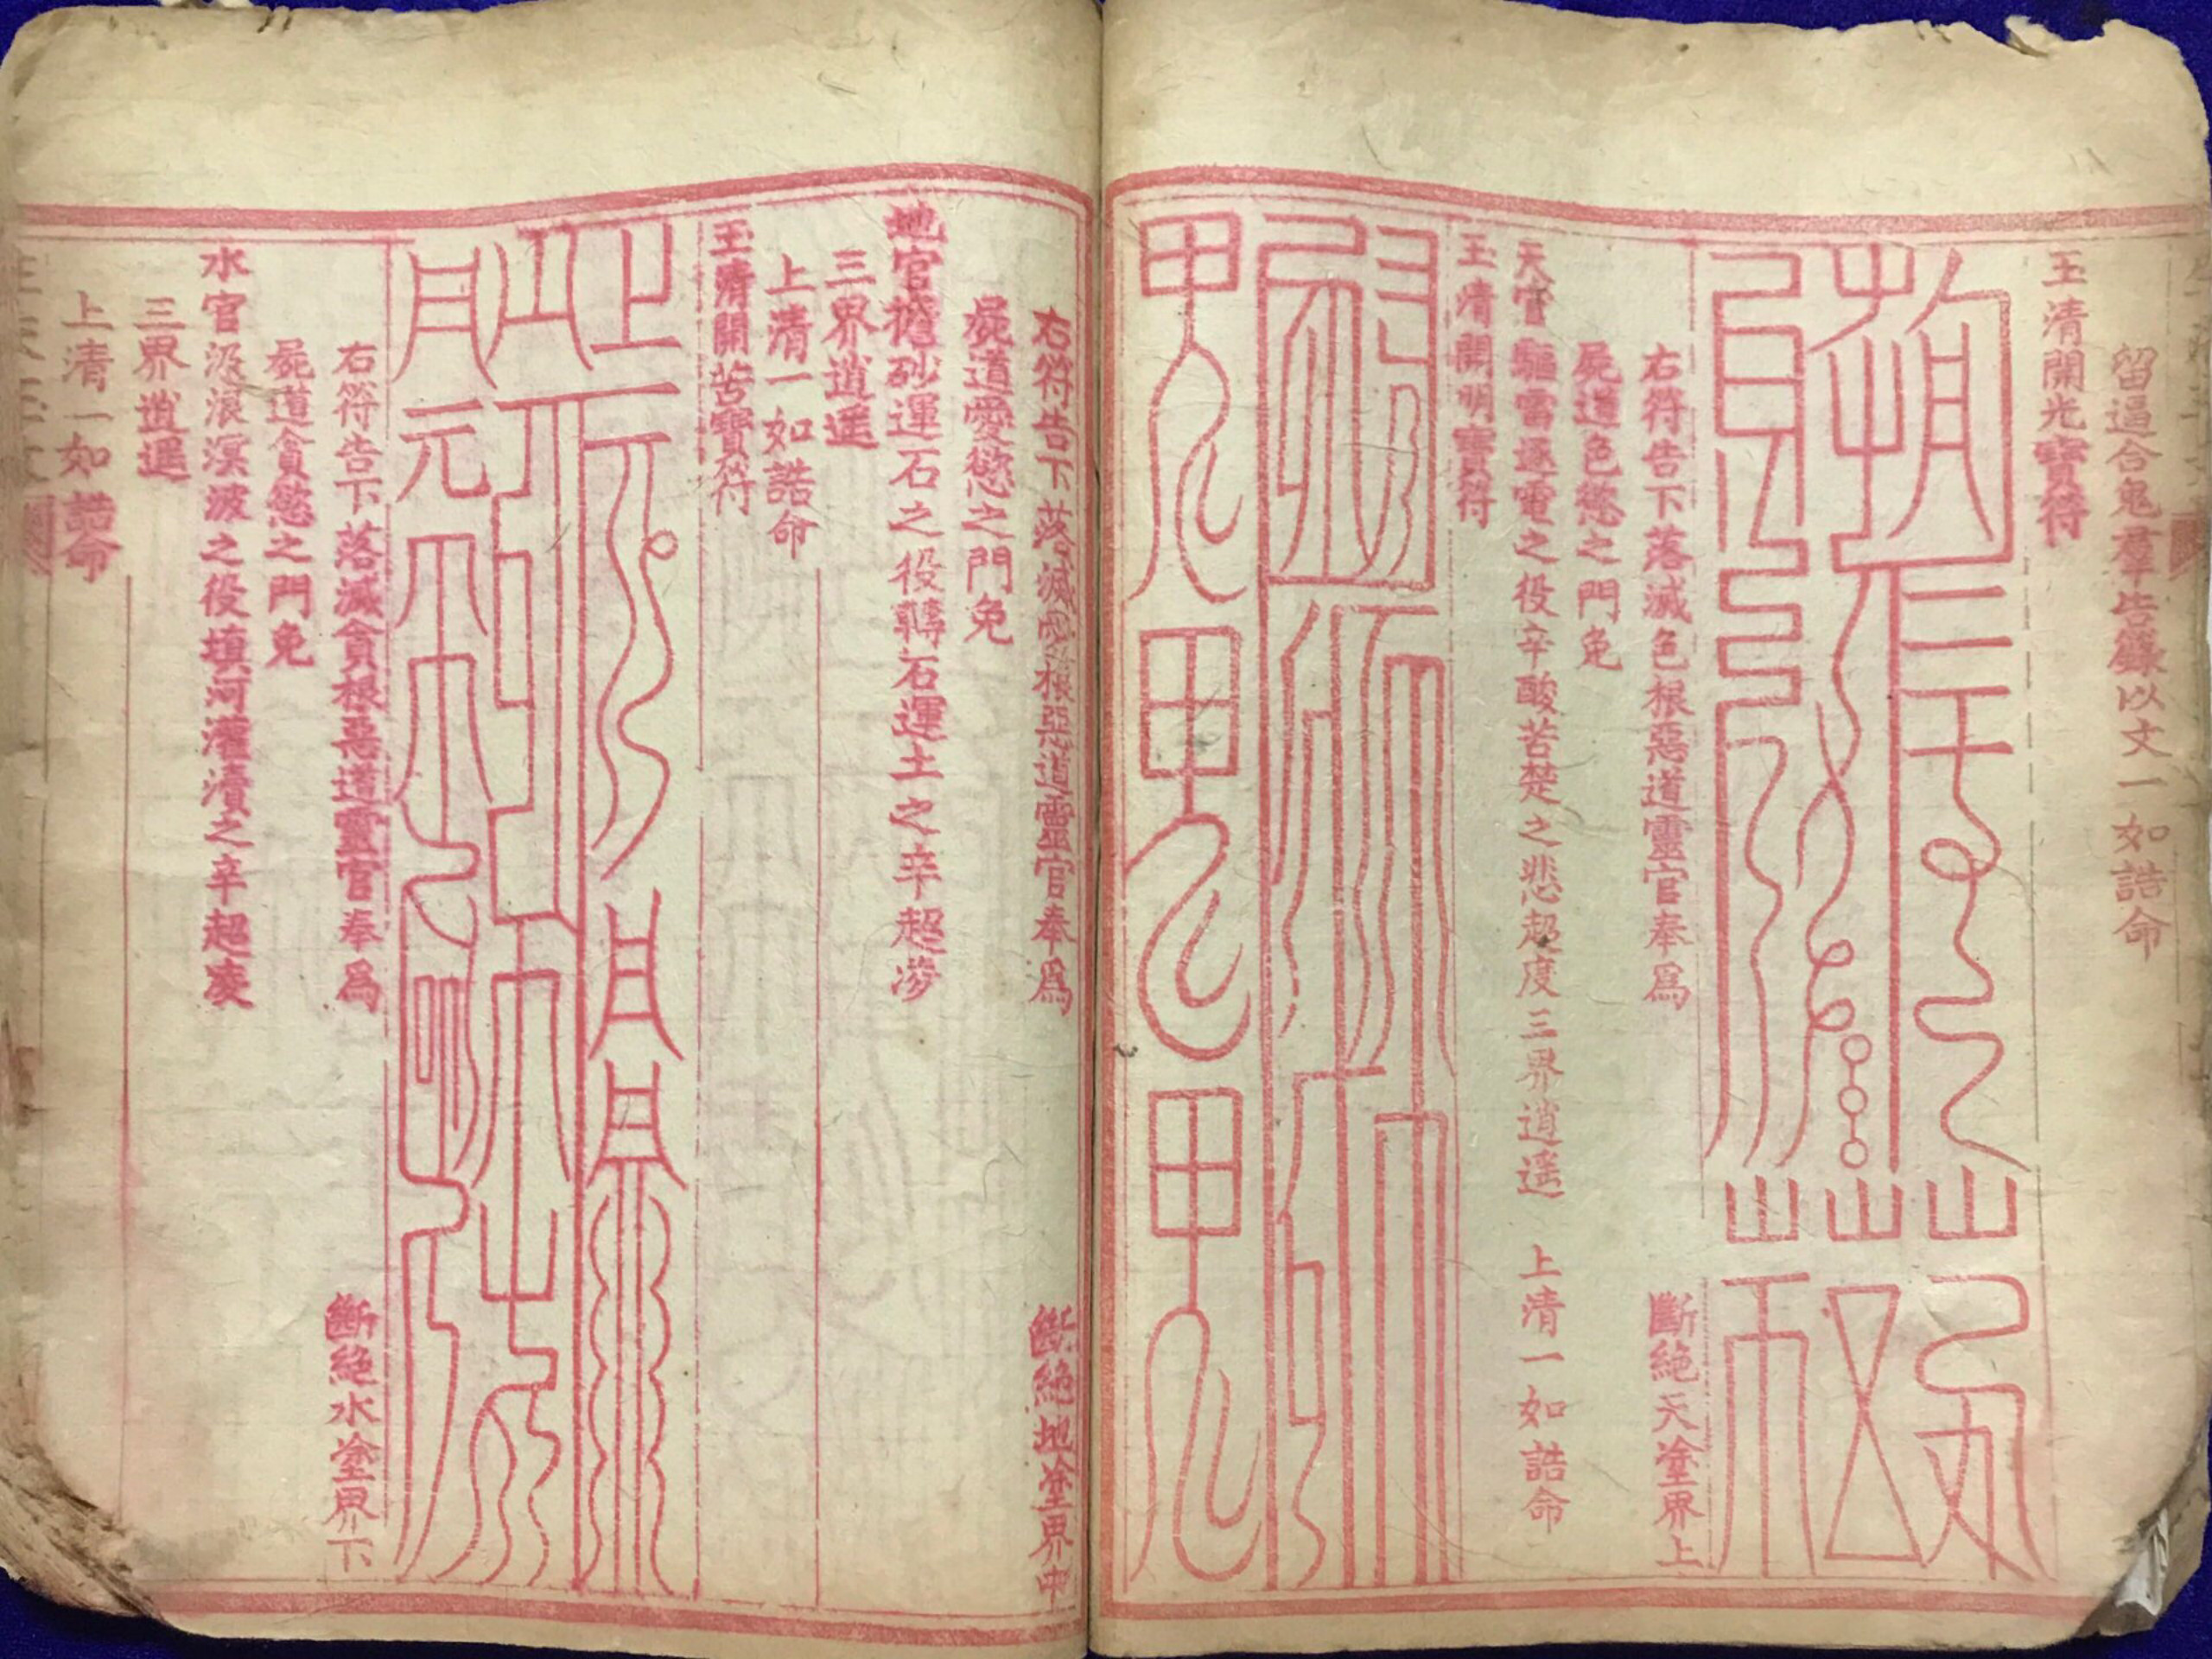 留逼合鬼羣告籙以文一如誥命
玉清開光寶符
右符告下落滅色根惡道靈官奉爲
斷絶天塗界上
屍道色慾之門免
天官驅雷逐電之役辛酸苦楚之悲超度三界逍遥 上清一如誥命
玉清開明寶符
右符告下落滅 根惡道靈官奉爲
斷絶地塗界中
屍道愛慾之門免
地官擔砂運石之役轉石運土之辛超渉
三界逍遥
上清一如誥命
玉清開苦寶符
右符告下落滅貪根惡道靈官奉爲
斷絶水塗界下
屍道貪慾之門免
水官 浪溟波之役填河灌瀆之辛超凌
三界逍遥
上清一如誥命